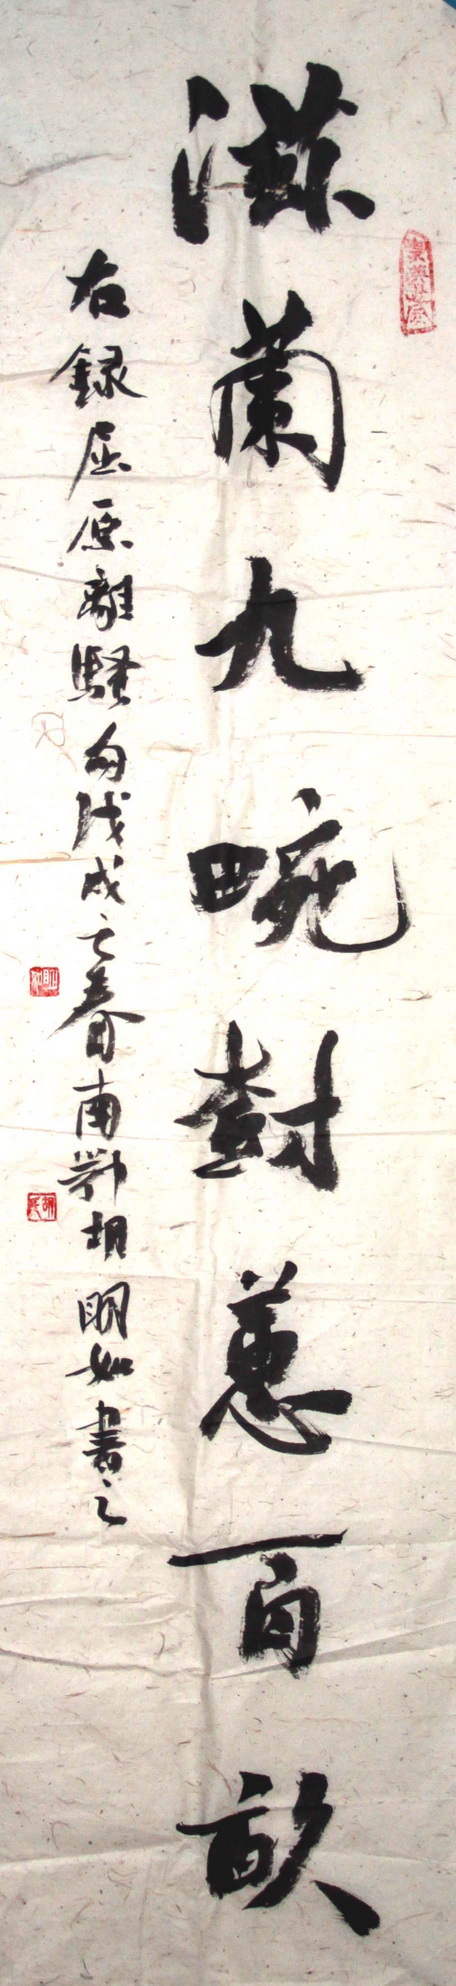 滋蘭九畹樹蕙百畝
右録屈原離騷句戊戌之春南鄂胡明如書之